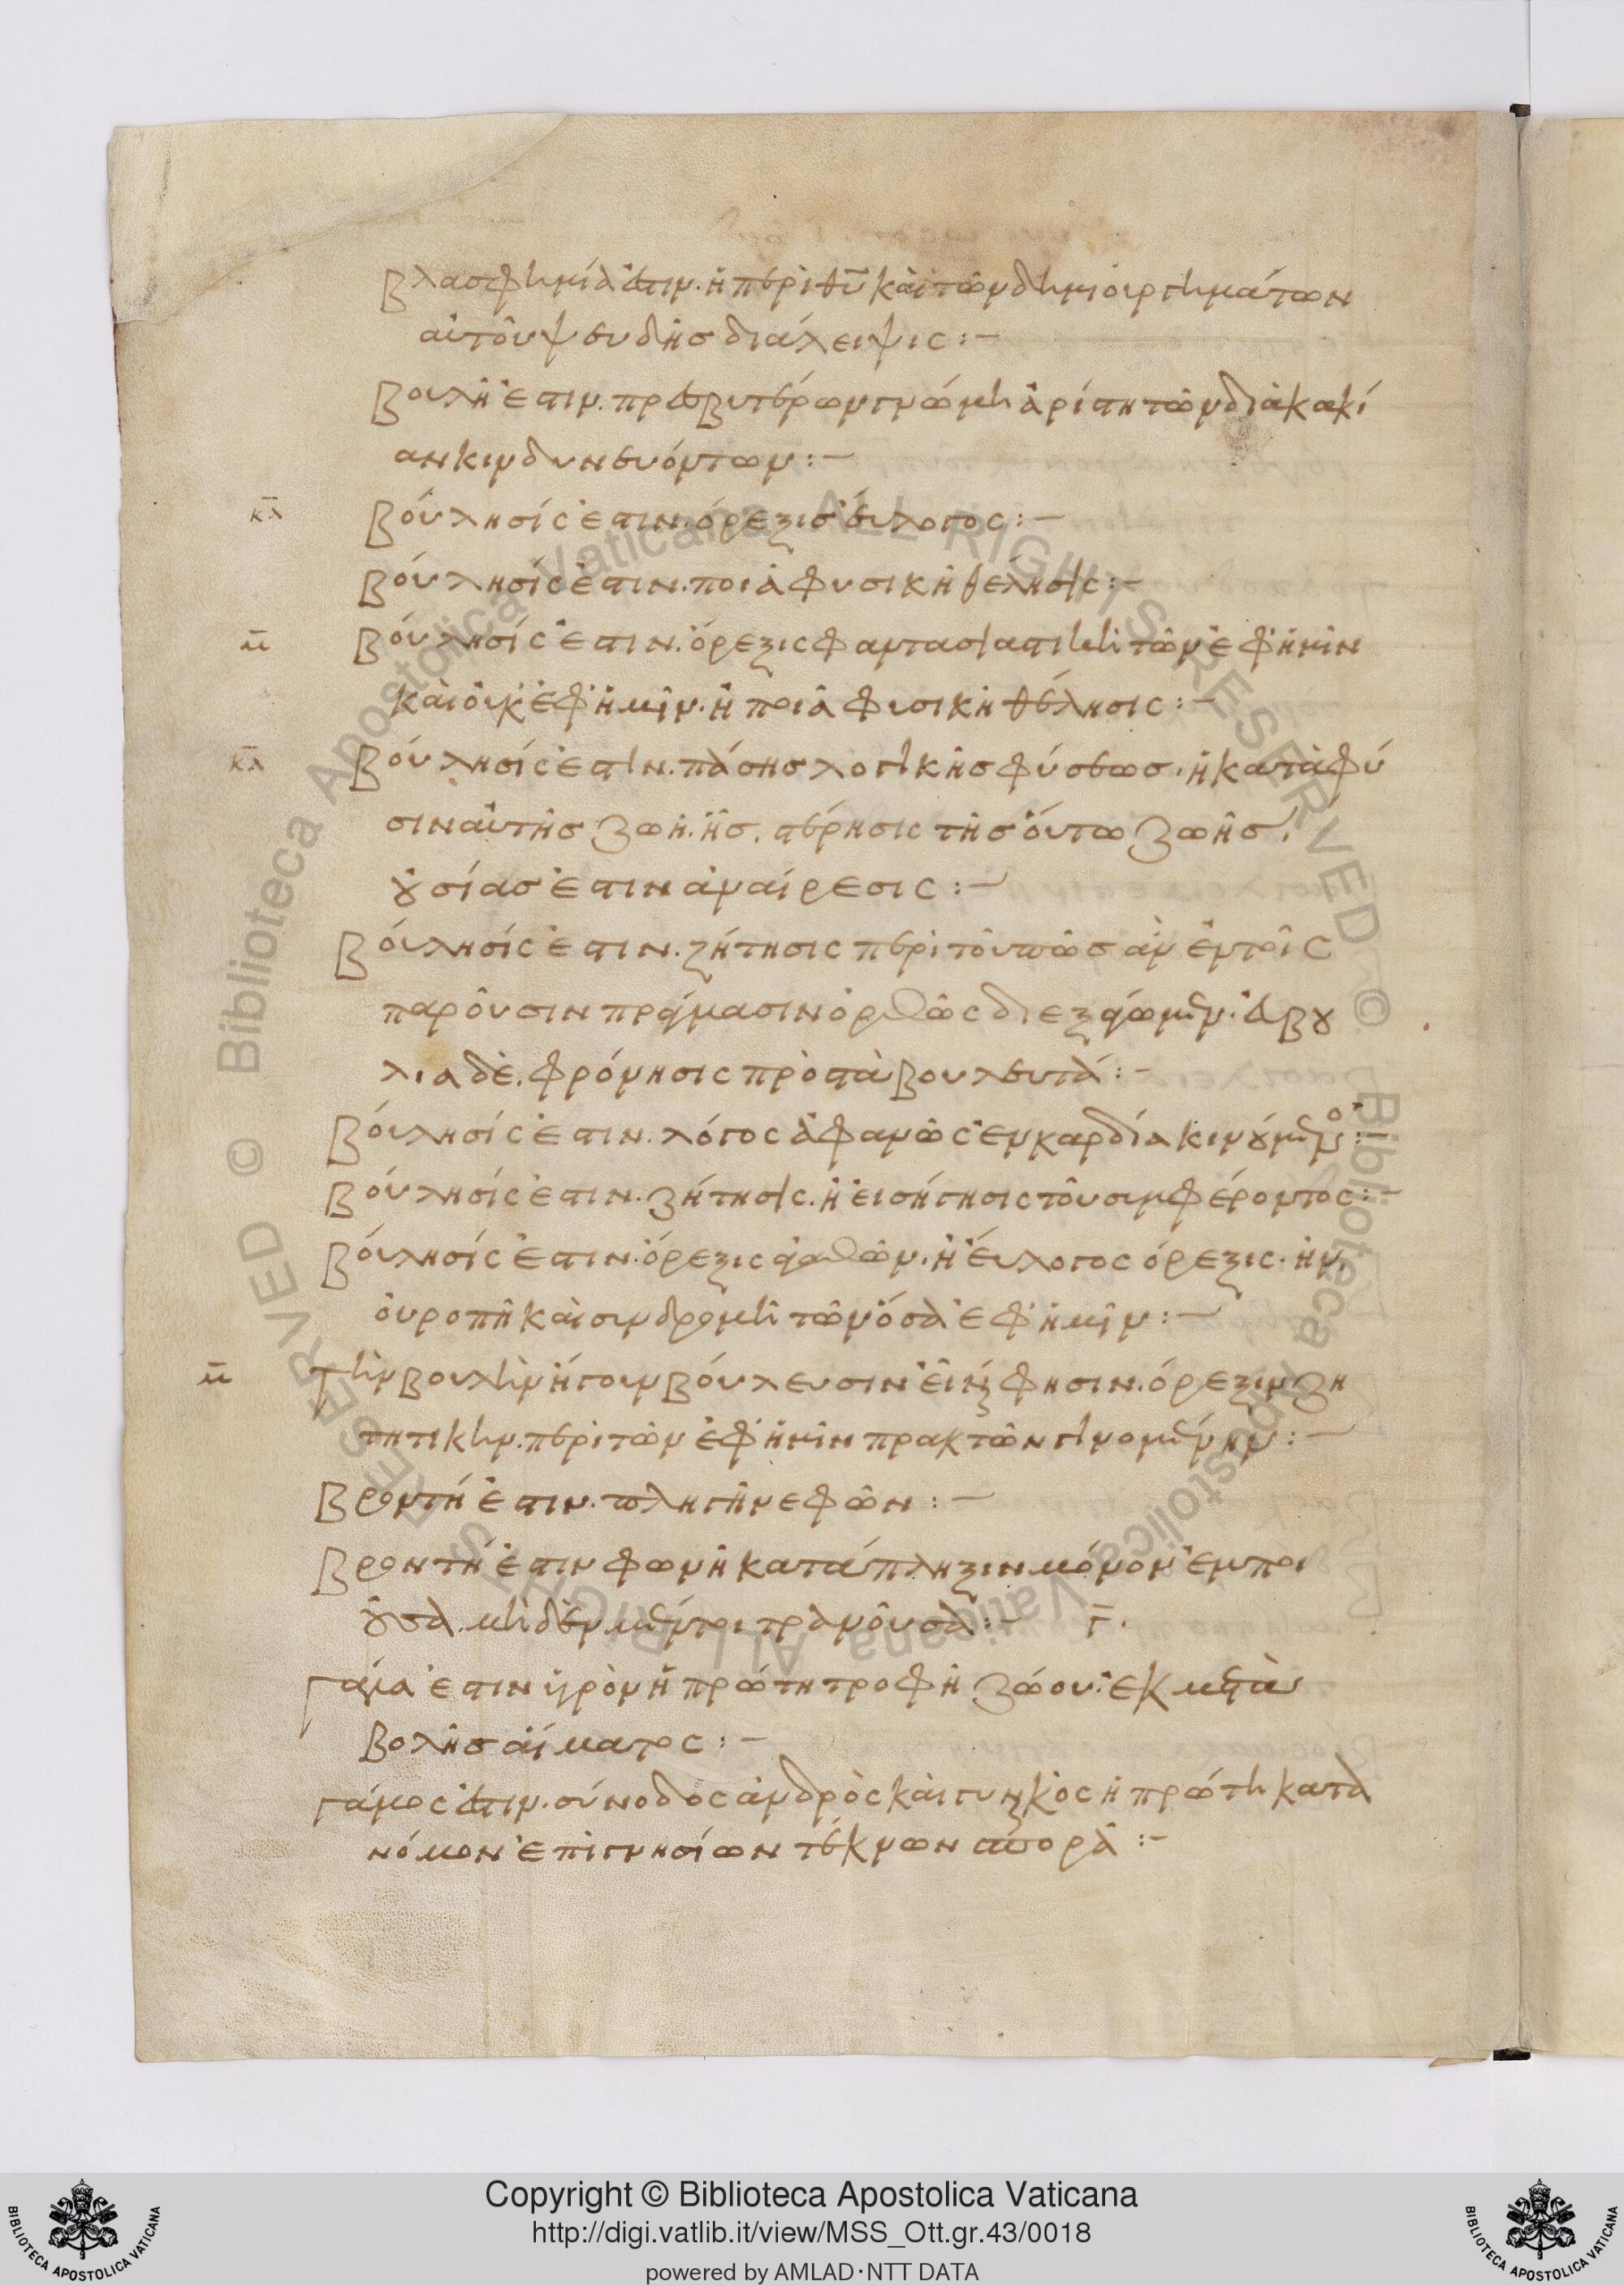 βλασφημία ἐστιν. ἡ περι θ̅υ̅ και τῶν δημιουργημάτων
αὐτοῦ ψευδὴσ διάλειψις :-
βουλὴ ἐστιν. πρεσβυτέρων γνώμη ἀρίστη τῶν διὰ κακί
αν κινδυνευόντων :-
κ̅λ̅ βούλησίς ἐστιν. ὄρεξισ εὔλογος :-
βούλησίς ἐστιν. ποιὰ φυσικὴ θέλησις :-
βούλησίς ἐστιν. ὄρεξις φανταστικὴ τῶν ἐφ' ἡμῖν
καὶ οὐκ' ἐφ' ἡμῖν. ἢ ποιὰ φυσικὴ θέλησις :-
κ̅λ̅ βούλησίς ἐστιν. πάσησ λογικῆσ φύσεωσ. ἡ κατὰ φύ
σιν αὐτῆσ ζωή. ἧσ. στέρησις τῆσ ὄντω ζωῆσ,
ȣσίασ ἐστιν ἀναίρεσις :-
βούλησίς ἐστιν. ζήτησις περὶ τοῦ πῶσ ἂν ἐν τοῖς
παροῦσιν πράγμασιν ὀρθῶς διεξάγωμεν. ἀβȣ
λια δὲ. φρόνησις πρὸς τὰ βουλευτά :-
βούλησίς ἐστιν. λόγος ἀφανῶς ἐν καρδία κινȣμεν° :-
βούλησίς ἐστιν. ζήτησις. ἢ εἰσήγησις τοῦ συμφέροντος :-
βούλησίς ἐστιν. ὄρεξις ἀγαθῶν. ἢ εὔλογος ὄρεξις. ἢ ν,
οὐ ροπὴ καὶ συνδρομὴ τῶν ὅσα ἐφ' ἡμῖν :-
τὴν βουλὴν ἤγουν βούλευσιν εἶναι φησιν. ὄρεξιν ζη
τητικὴν. περι τῶν ἐφ' ἡμῖν πρακτῶν γινομένην :-
βροντή ἐστιν. πληγὴ νεφῶν :-
βροντή ἐστιν φωνὴ κατάπληξιν μόνον ἐμποι
ȣσα. μηδὲν μέντοι τρανοῦσα :- γ̅.
γάλα ἐστιν ὑγρὸν ἢ πρώτη τροφὴ ζώου. ἐκ μετα
βολῆσ αἵματος :-
γάμος ἐστιν. σύνοδος ἀνδρὸς καὶ γυναικὸς ἡ πρώτη κατα
νόμον ἐπὶ γνησίων τέκνων σπορᾶ :-
Copyright © Biblioteca Apostolica Vaticana
http://digi.vatlib.it/view/MSS_Ott.gr.43/0018
powered by AMLAD·NTT DATA
BIBLIOTECA APOSTOLICA VATICANA
BIBLIOTECA APOSTOLICA VATICANA
© Biblioteca Apostolica Vaticana ALL RIGHTS RESERVED
© Biblioteca Apostolica Vaticana ALL RIGHTS RESERVED